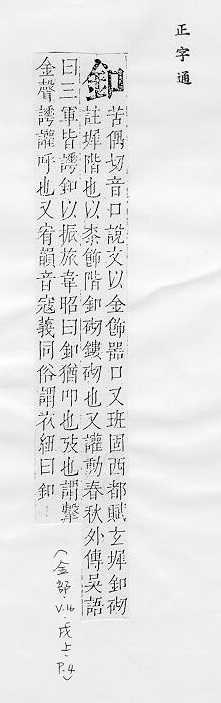 正字通
釦 苦偶切音口說文以金飾器口又班固西都賦玄墀釦砌
註墀階也以漆飾階釦砌鏤砌也又讙動春秋外傳吳語
曰三軍皆譁釦以振旅韋昭曰釦猶叩也攷也謂擊
金聲譁讙呼也又宥韻音寇義同俗謂衣紐曰釦
(金部.V.16.戌上.P.4)